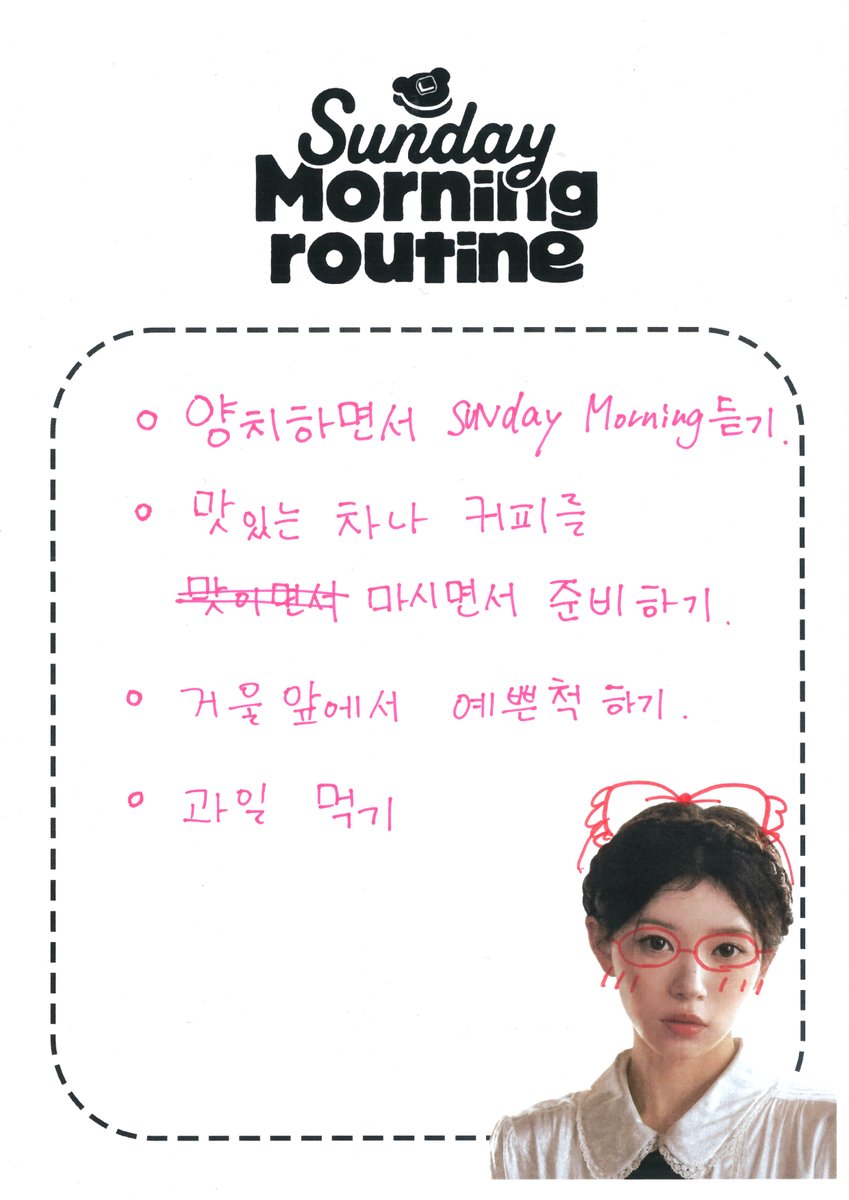 Sunday
Morning
routine
양치하면서 sunday Morning 듣기.
맛있는 차나 커피를
맛이면서 마시면서 준비하기.
거울 앞에서 예쁜척 하기.
과일 먹기